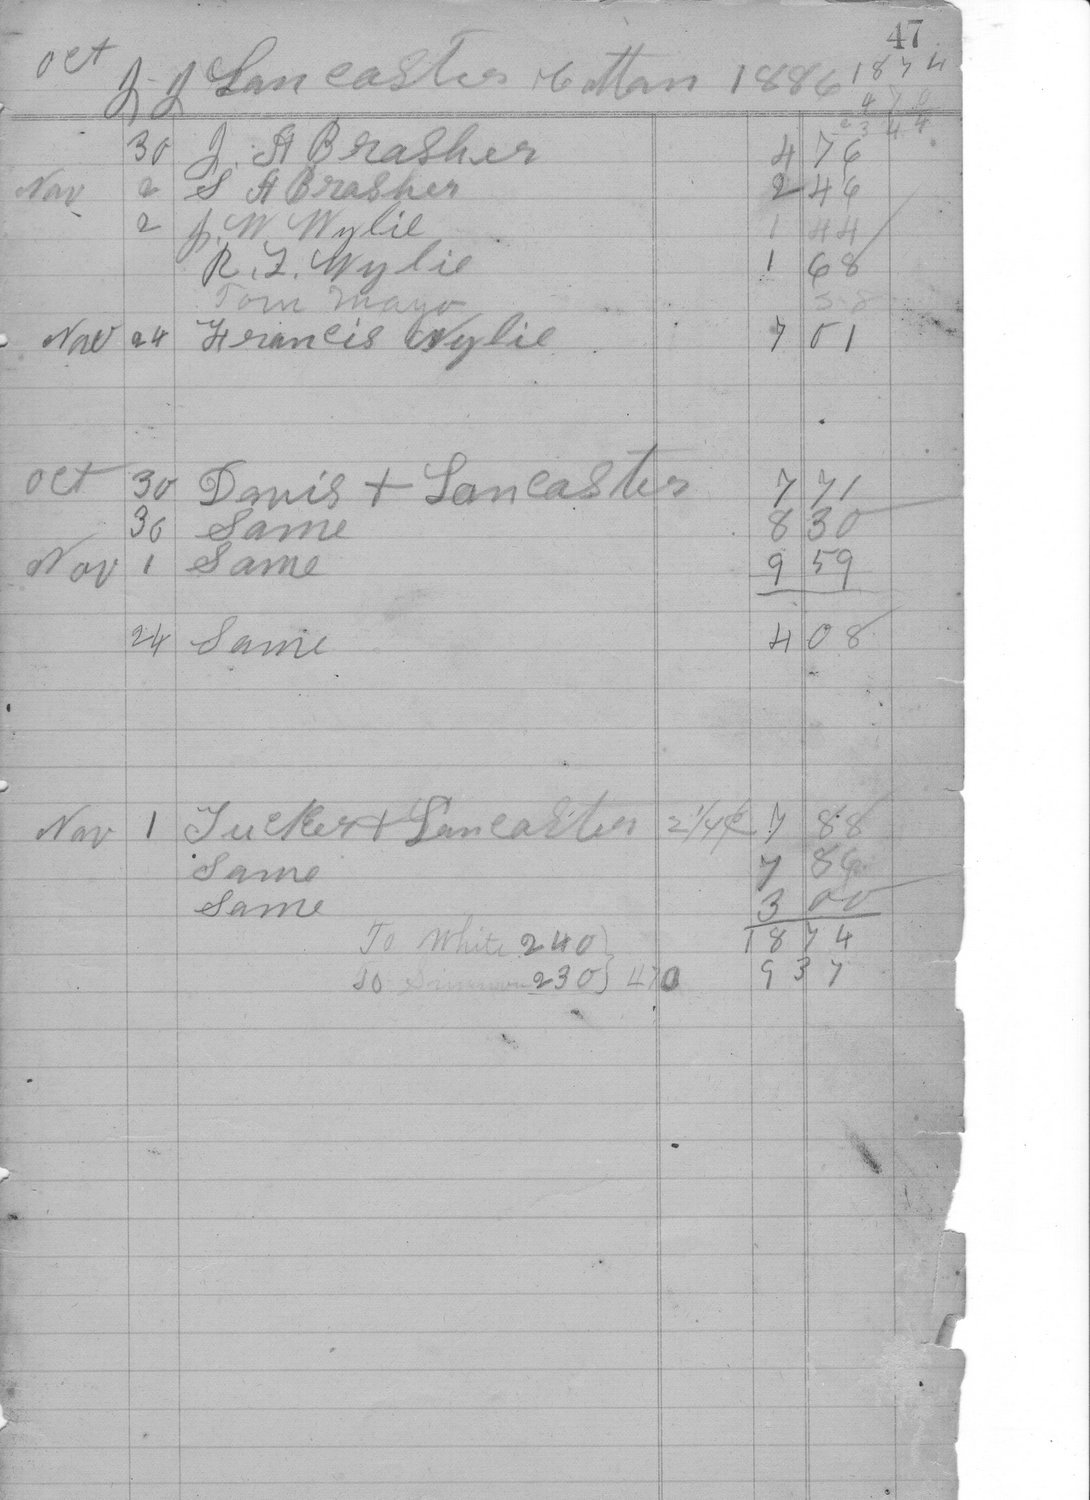 47
Oct J J Lancaster Cottan 1886 1874
4 70
2 3 4 4
30 J. A Brasher 4 76
Nov 2 S A Brasher 2 46
2 J. W Wylie 1 44
R. F. Wylie 1 68
Tom Mayo 58
Nov 24 Francis Wylie 7 01
Oct 30 Davis + Lancaster 7 71
30 Same 8 30
Nov 1 Same 9 59
24 Same 4 08
Nov 1 Tucker + Lancaster 2 1/4 ¢ 7 88
Same 7 86
Same 3 00
To White 240} 18 74
To 230} 470 9 37